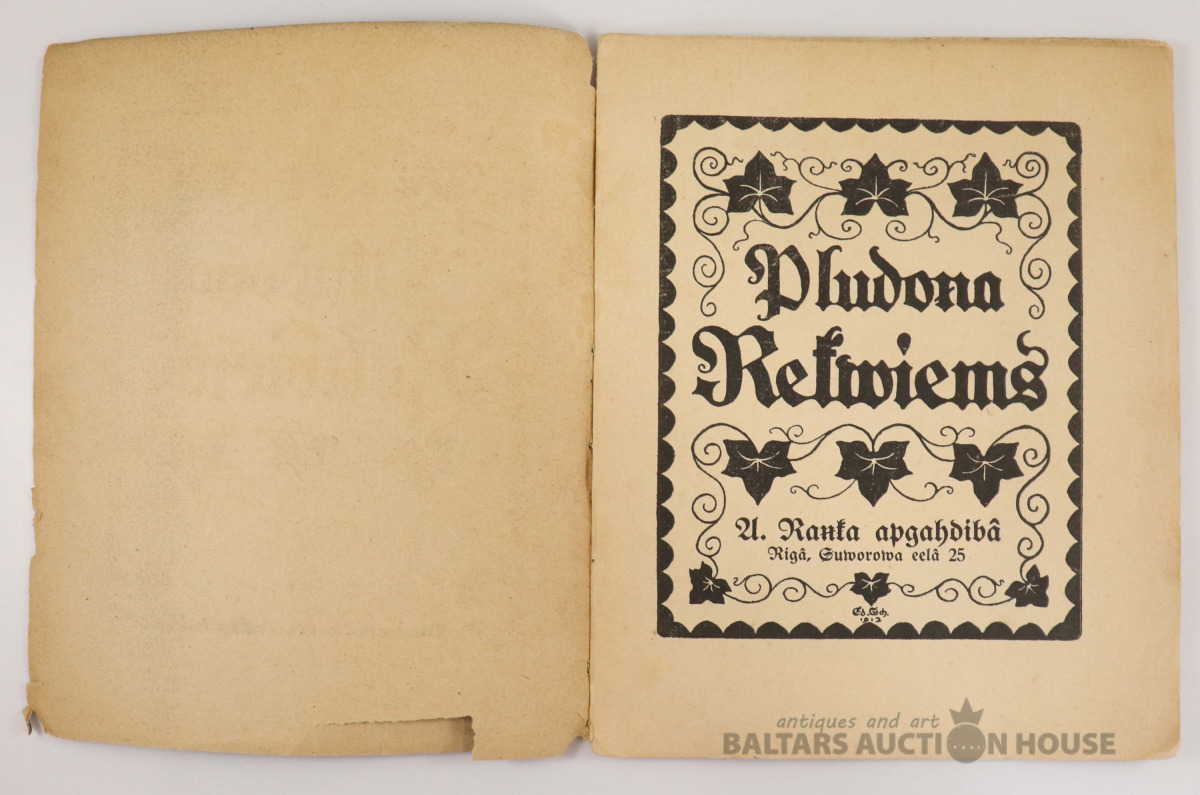 Pludona
Rekwiems
A. Ranka apgahdibâ
Rigâ, Suworowa eelâ 25
Ed. Sch.
1912
antiques and art
BALTARS AUCTION HOUSE